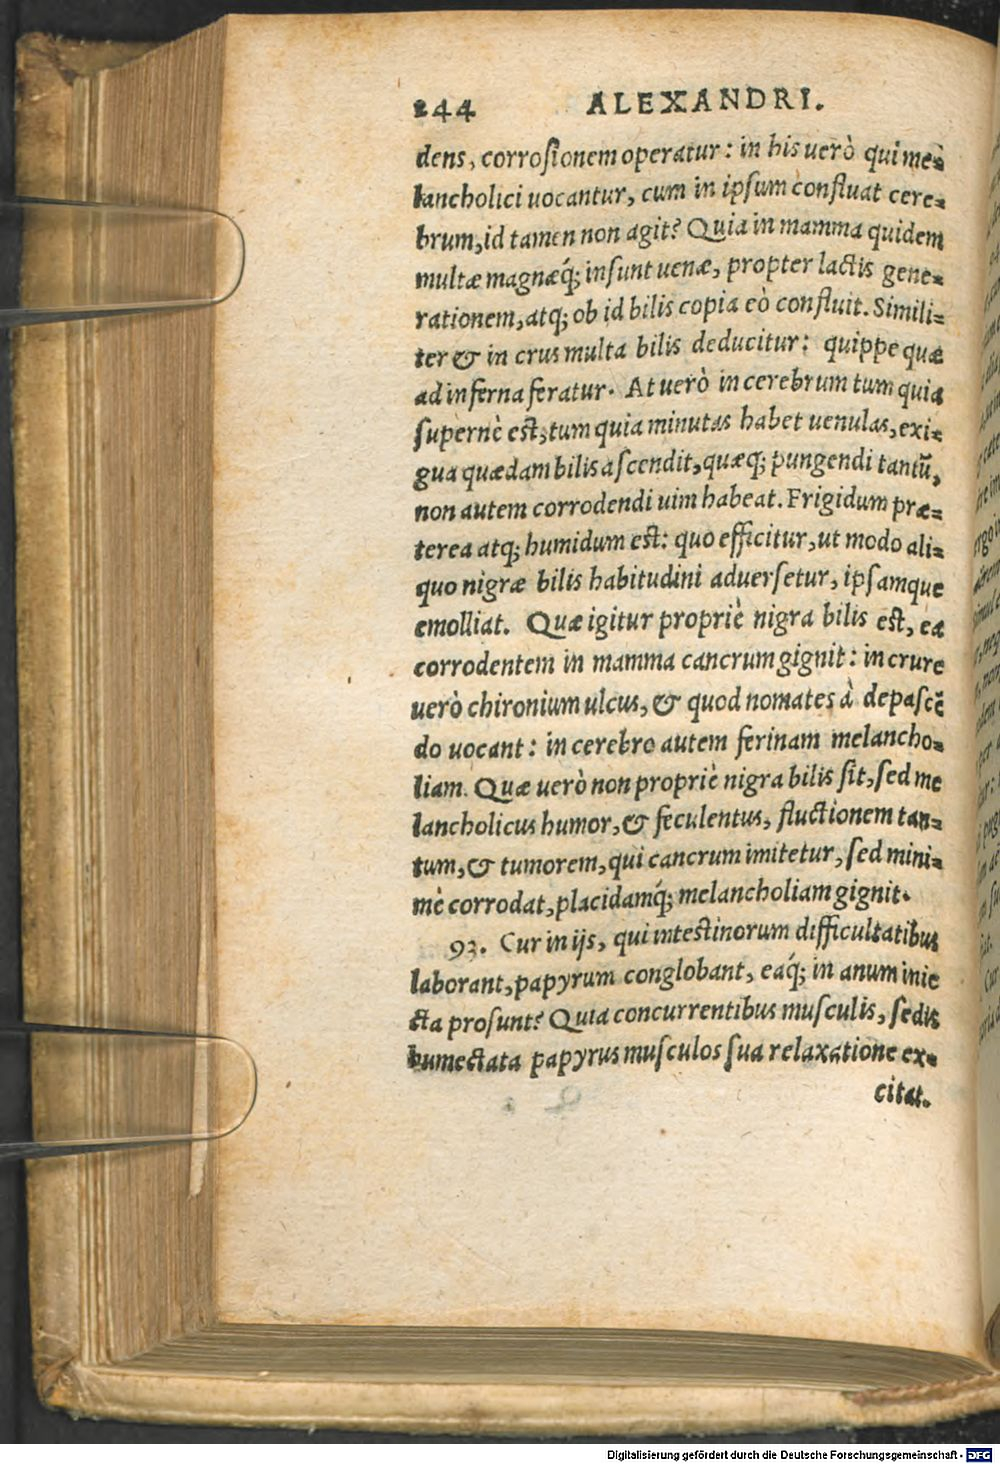 244 ALEXANDRI.
dens, corrosionem operatur: in his uerò qui me=
lancholici uocantur, cum in ipsum confluat cere=
brum, id tamen non agit? Quia in mamma quidem
multæ magnæq́; insunt uenæ, propter lactis gene=
rationem, atq; ob id bilis copia eò confluit. Simili=
ter & in crus multa bilis deducitur: quippe quæ
ad inferna feratur. At uerò in cerebrum tum quia
supernè est, tum quia minutas habet uenulas, exi=
gua quædam bilis ascendit, quæq; pungendi tantũ,
non autem corrodendi uim habeat. Frigidum præ=
terea atq; humidum est: quo efficitur, ut modo ali=
quo nigræ bilis habitudini aduersetur, ipsamque
emolliat. Quæ igitur propriè nigra bilis est, ea
corrodentem in mamma cancrum gignit: in crure
uerò chironium ulcus, & quod nomates à depascẽ
do uocant: in cerebro autem ferinam melancho=
liam. Quæ uerò non propriè nigra bilis sit, sed me
lancholicus humor, & feculentus, fluctionem tan=
tum, & tumorem, qui cancrum imitetur, sed mini=
mè corrodat, placidamq́; melancholiam gignit.
93. Cur in ijs, qui intestinorum difficultatibus
laborant, papyrum conglobant, eaq́; in anum inie
cta prosunt? Quia concurrentibus musculis, sedis
humectata papyrus musculos sua relaxatione ex=
citat.
Digitalisierung gefördert durch die Deutsche Forschungsgemeinschaft - DFG